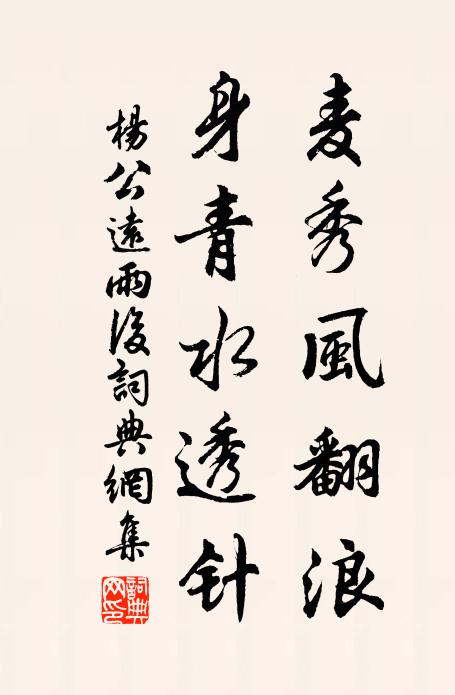 麦秀風翻浪
身青水透针
楊公遠雨後詞典網集
詞典網印